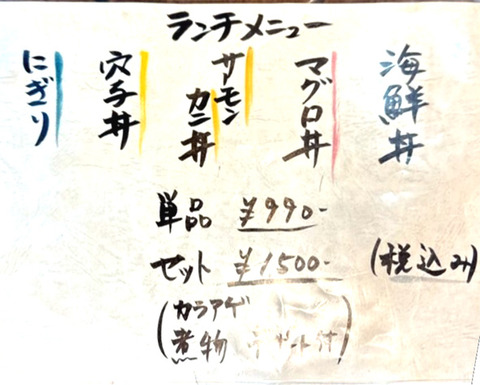 ランチメニュー
海鮮丼
マグロ丼
サーモン
カニ丼
穴子丼
にぎり
単品 ¥990-
セット ¥1500- (税込み)
(カラアゲ
煮物 デザート付)